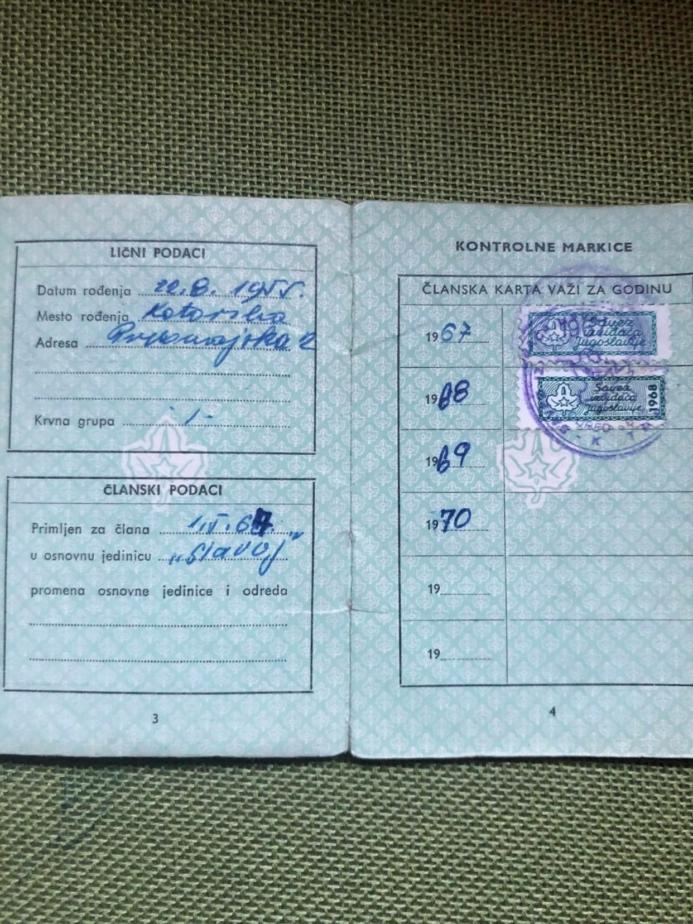 LIČNI PODACI
Datum rođenja 22.8. 1955.
Mesto rođenja Kotoriba
Adresa 2
Krvna grupa -/-
ČLANSKI PODACI
Primljen za člana 1.V.67.
u osnovnu jedinicu „Slavuj"
promena osnovne jedinice i odreda
3
KONTROLNE MARKICE
ČLANSKA KARTA VAŽI ZA GODINU
1967
Savez
izviđača
Jugoslavije
1968
Savez
izviđača
Jugoslavije
1968
1969
1970
19
19
4